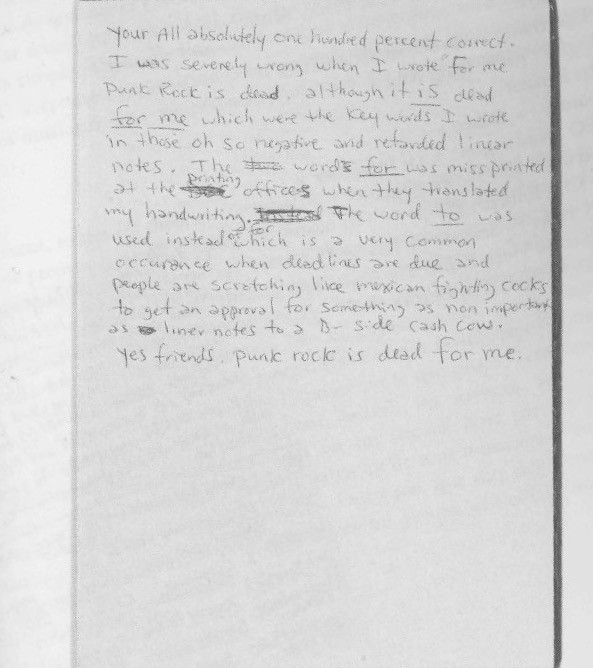 Your All absolutely one hundred percent correct.
I was severely wrong when I wrote "for me
Punk Rock is dead. although it is dead
for me which were the key words I wrote
in those oh so negative and retarded linear
notes. The words for was missprinted
at the printing offices when they translated
my handwriting. The word to was
used instead of for which is a very common
occurance when deadlines are due and
people are scratching like mexican fighting cocks
to get an approval for something as non important
as liner notes to a B-side cash cow.
Yes friends. punk rock is dead for me.